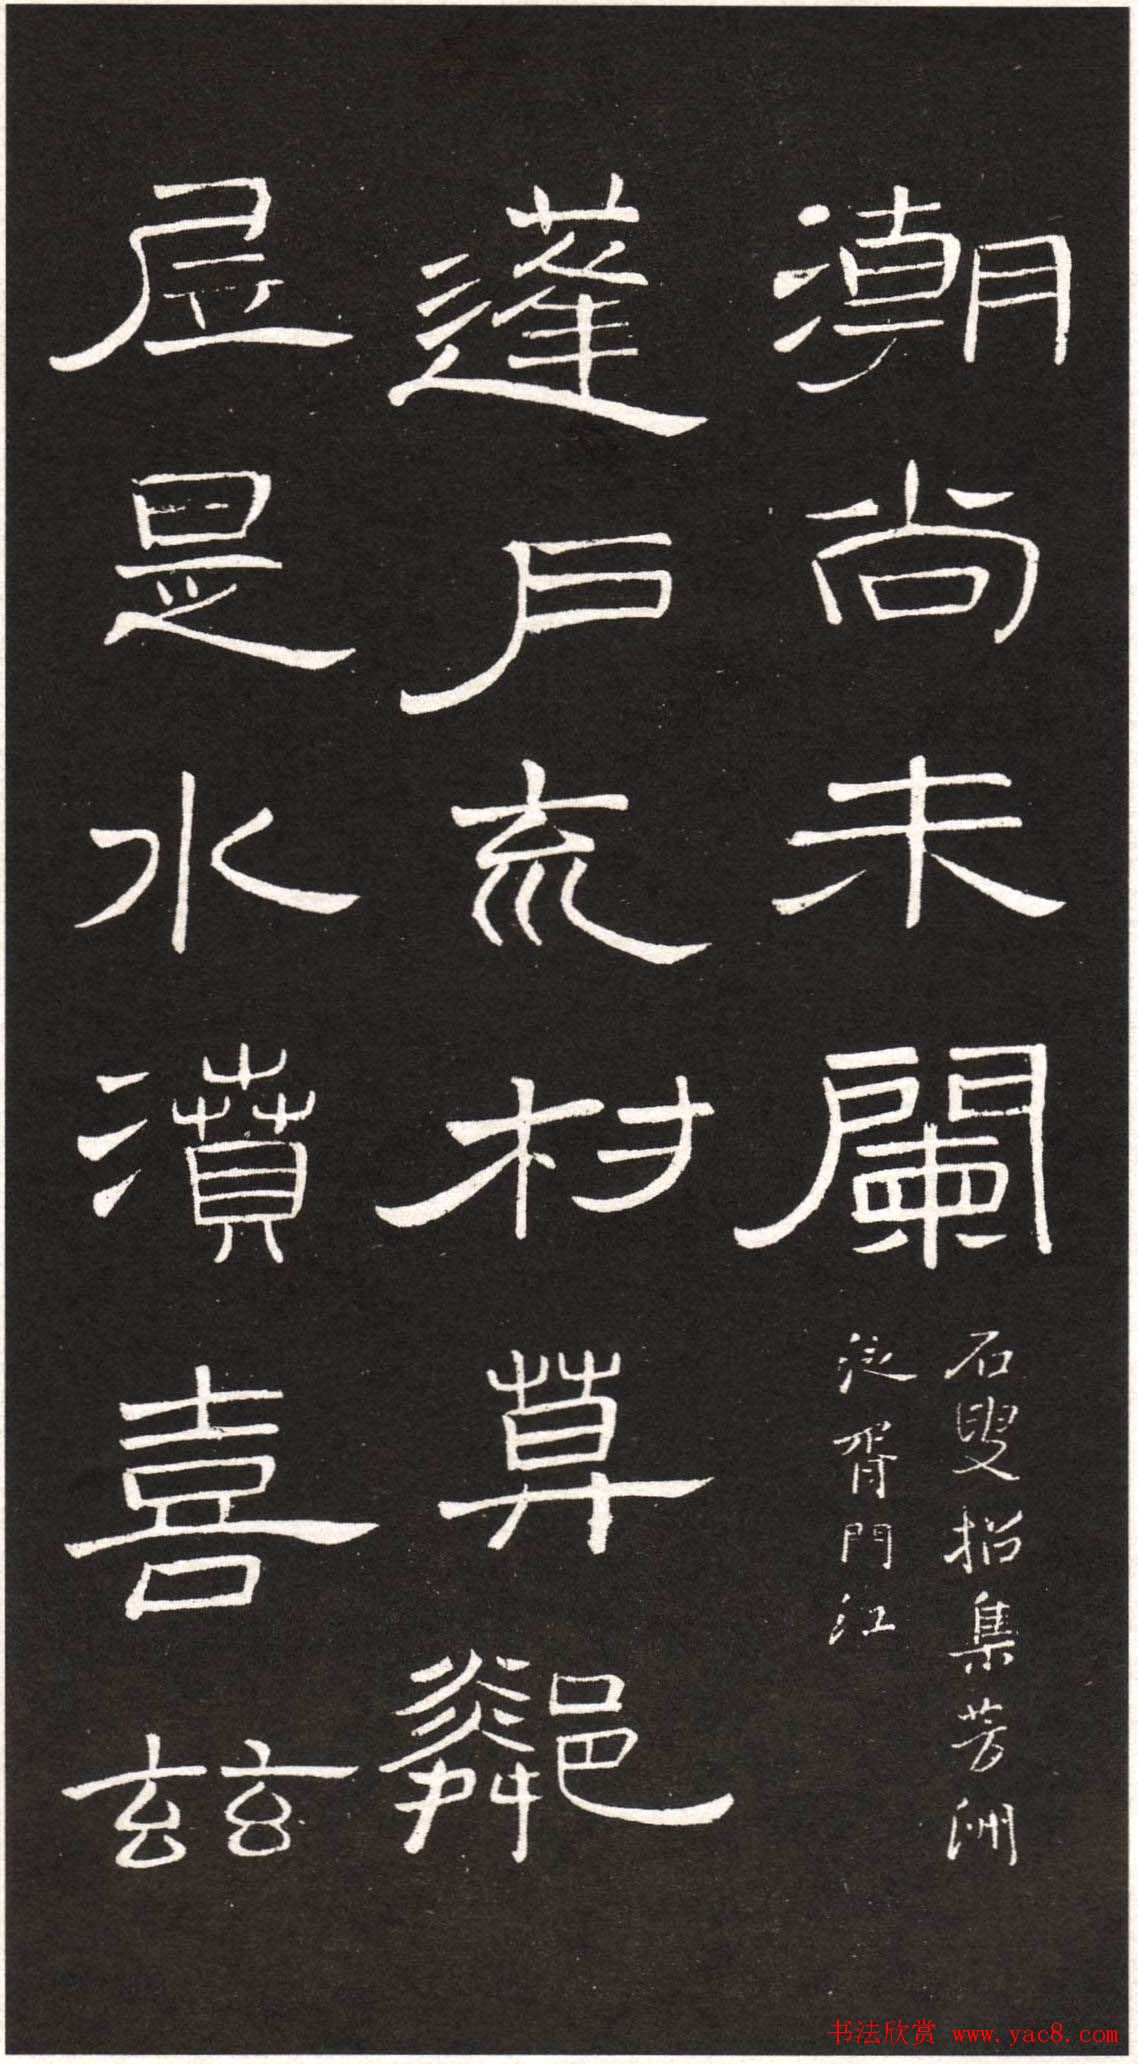 潮尚未闌
石叟招集芳洲
泛胥門江
蓬戶㐬村算鄰
是水濆喜玆
书法欣赏 www.yac8.com